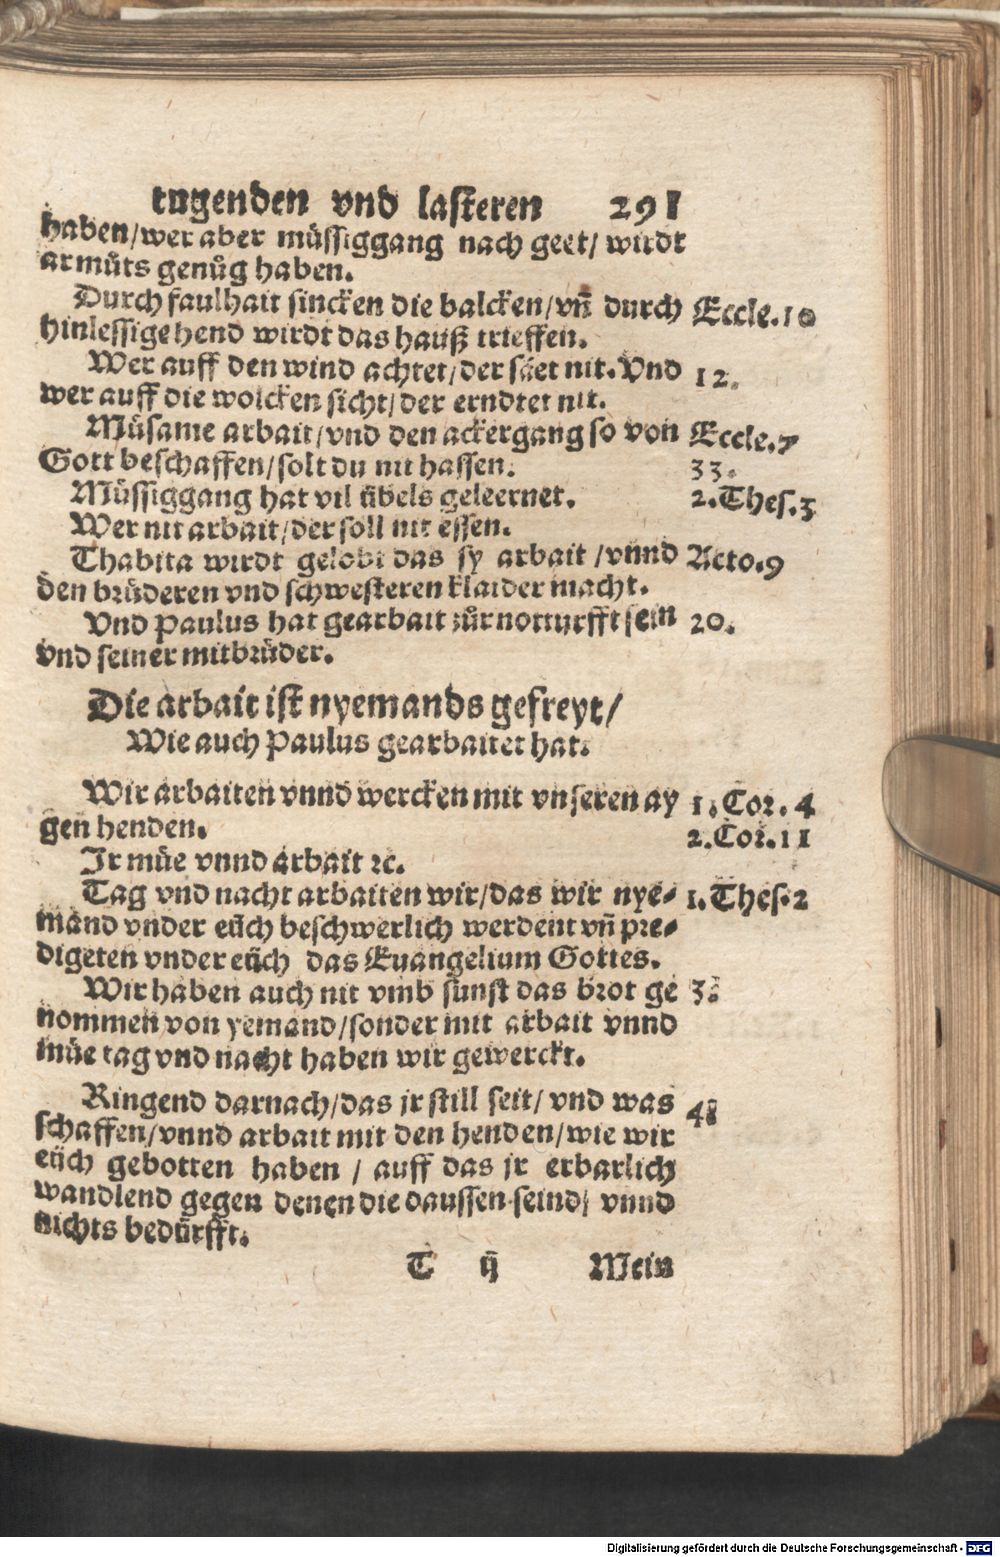 tugenden vnd lasteren 291
haben/wer aber müssiggang nach geet/ wirdt
armůts genůg haben.
Durch faulhait sincken die balcken/vñ durch Eccle.10
hinlessige hend wirdt das hauß trieffen.
Wer auff den wind achtet/der säet nit. Vnd 12.
wer auff die wolcken sicht/der erndtet nit.
Müsame arbait/vnd den ackergang so von Eccle.7
Gott beschaffen/solt du nit hassen. 33.
Müssiggang hat vil übels geleernet. 2.Thes.3
Wer nit arbait/der soll nit essen.
Thabita wirdt gelobt das sy arbait /vnnd Acto.9
den brüderen vnd schwesteren klaider macht.
Vnd Paulus hat gearbait zůr notturfft sein 20.
vnd seiner mitbrüder.
Die arbait ist nyemands gefreyt/
Wie auch Paulus gearbaitet hat.
Wir arbaiten vnnd wercken mit vnseren ay 1.Cor.4
gen henden. 2.Cor.11
Ir müe vnnd arbait ꝛc.
Tag vnd nacht arbaiten wir/das wir nye⸗ 1.Thes.2
mand vnder eüch beschwerlich werdent vñ pre⸗
digeten vnder eüch das Euangelium Gottes.
Wir haben auch nit vmb sunst das brot ge 3.
nommen von yemand/sonder mit arbait vnnd
müe tag vnd nacht haben wir gewerckt.
Ringend darnach/das jr still seit/ vnd was 4.
schaffen/vnnd arbait mit den henden/wie wir
eüch gebotten haben / auff das jr erbarlich
wandlend gegen denen die daussen seind/ vnnd
nichts bedürfft.
T ij Mein
Digitalisierung gefördert durch die Deutsche Forschungsgemeinschaft - DFG